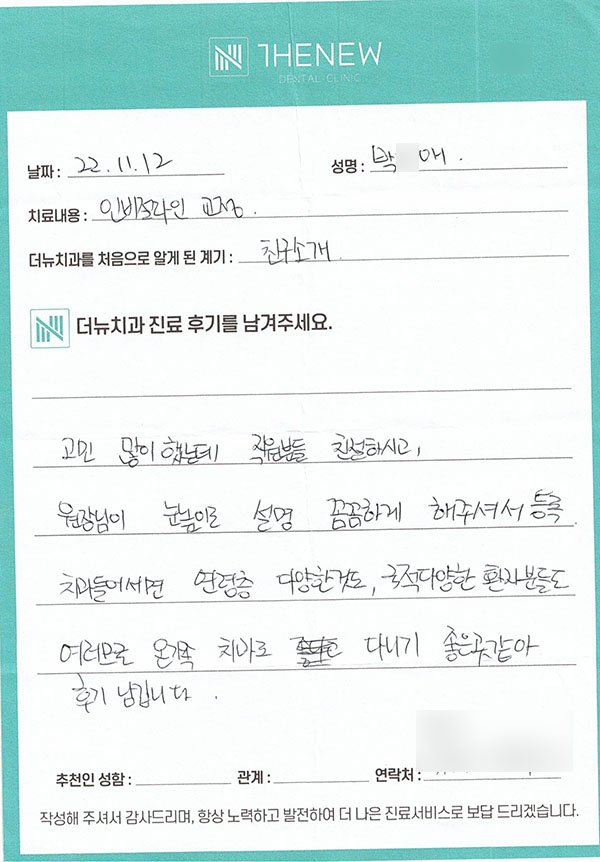 THENEW
DENTAL CLINIC
날짜 : 22.11.12 성명 : 박 애.
치료내용 : 인비절라인 교정.
더뉴치과를 처음으로 알게 된 계기 : 친구소개
더뉴치과 진료 후기를 남겨주세요.
고민 많이 했는데 직원분들 친절하시고,
원장님이 눈높이로 설명 꼼꼼하게 해주셔서 등록
치과들어서면 연령층 다양한것도, 국적다양한 환자분들도
여러모로 온가족 치과로 다니기 좋은곳같아
후기 남깁니다.
추천인 성함 : 관계 : 연락처 :
작성해 주셔서 감사드리며, 항상 노력하고 발전하여 더 나은 진료서비스로 보답 드리겠습니다.